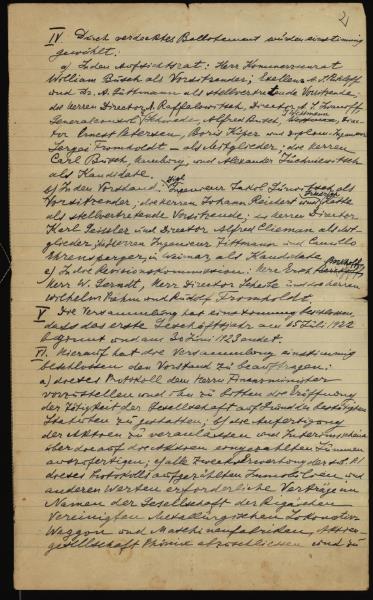 2)
IV Durch verdecktes Ballotement wurden einstimmig
gewählt:
a) In den Aufsichtsrat: Herr Kommerzienrat
William Busch als Vorsitzender; Exellenz A. A.
und Dr. A. Littmann als stellvertretende Vorsitzende;
des herren Director A. Raffalowitsch, Director A. I.
Generalconsul Schwede, Alfred Busch, Direc-
tor Ernest Petersen, Boris Kiper und Diplom-Ingenieur
Sergei Fromholdt - als Mitglieder, die herren
Carl Busch, und Alexander
als Kandidate.
b) In den Vorstand: Ingenieur Jakob als
Vorsitzender, des herren Johann Reichert und
als stellvertretende Vorsitzende; des herren Director
Karl und Director Alfred als Mit-
glieder; die herren Ingenieur Zittmann und Camillo
Ehrensperger, in Weimar als Kandidate
c) In die Revisionskommission: Herr Ernst
Herr W. Berndt, Herr Director und des herren
Wilhelm und Rudolf Fromholdt.
V Die Versammlung hat einstimmig beschlossen,
dass das erste Geschäftsjahr am 05 Juli 1922
beginnt und am 30 Juni 1923 endet.
VI. Hierauf hat die Versammlung einstimmig
beschlossen den Vorstand zu beauftragen:
a) dieses Protokoll dem Herrn Finanzminister
vorzustellen und ihn zu bitten die Eröffnung
der Tätigkeit der Gesellschaft auf Grund der bestätigten
Statuten zu gestatten; b) die Anfertigung
der Aktien zu veranlassen und Interimsscheine
über die auf die Aktien eingezahlten Summen
auszufertigen; c) alle zwecks
dieses Protokolls aufgezählten Immobilien und
anderen Werten erforderliche Verträge im
Namen der Gesellschaft der Rigaschen
Vereinigten Metallurgischen Lokomotiv-
Waggon und Maschinenfabriken, Aktien-
gesellschaft Phönix abzuschliessen und zu